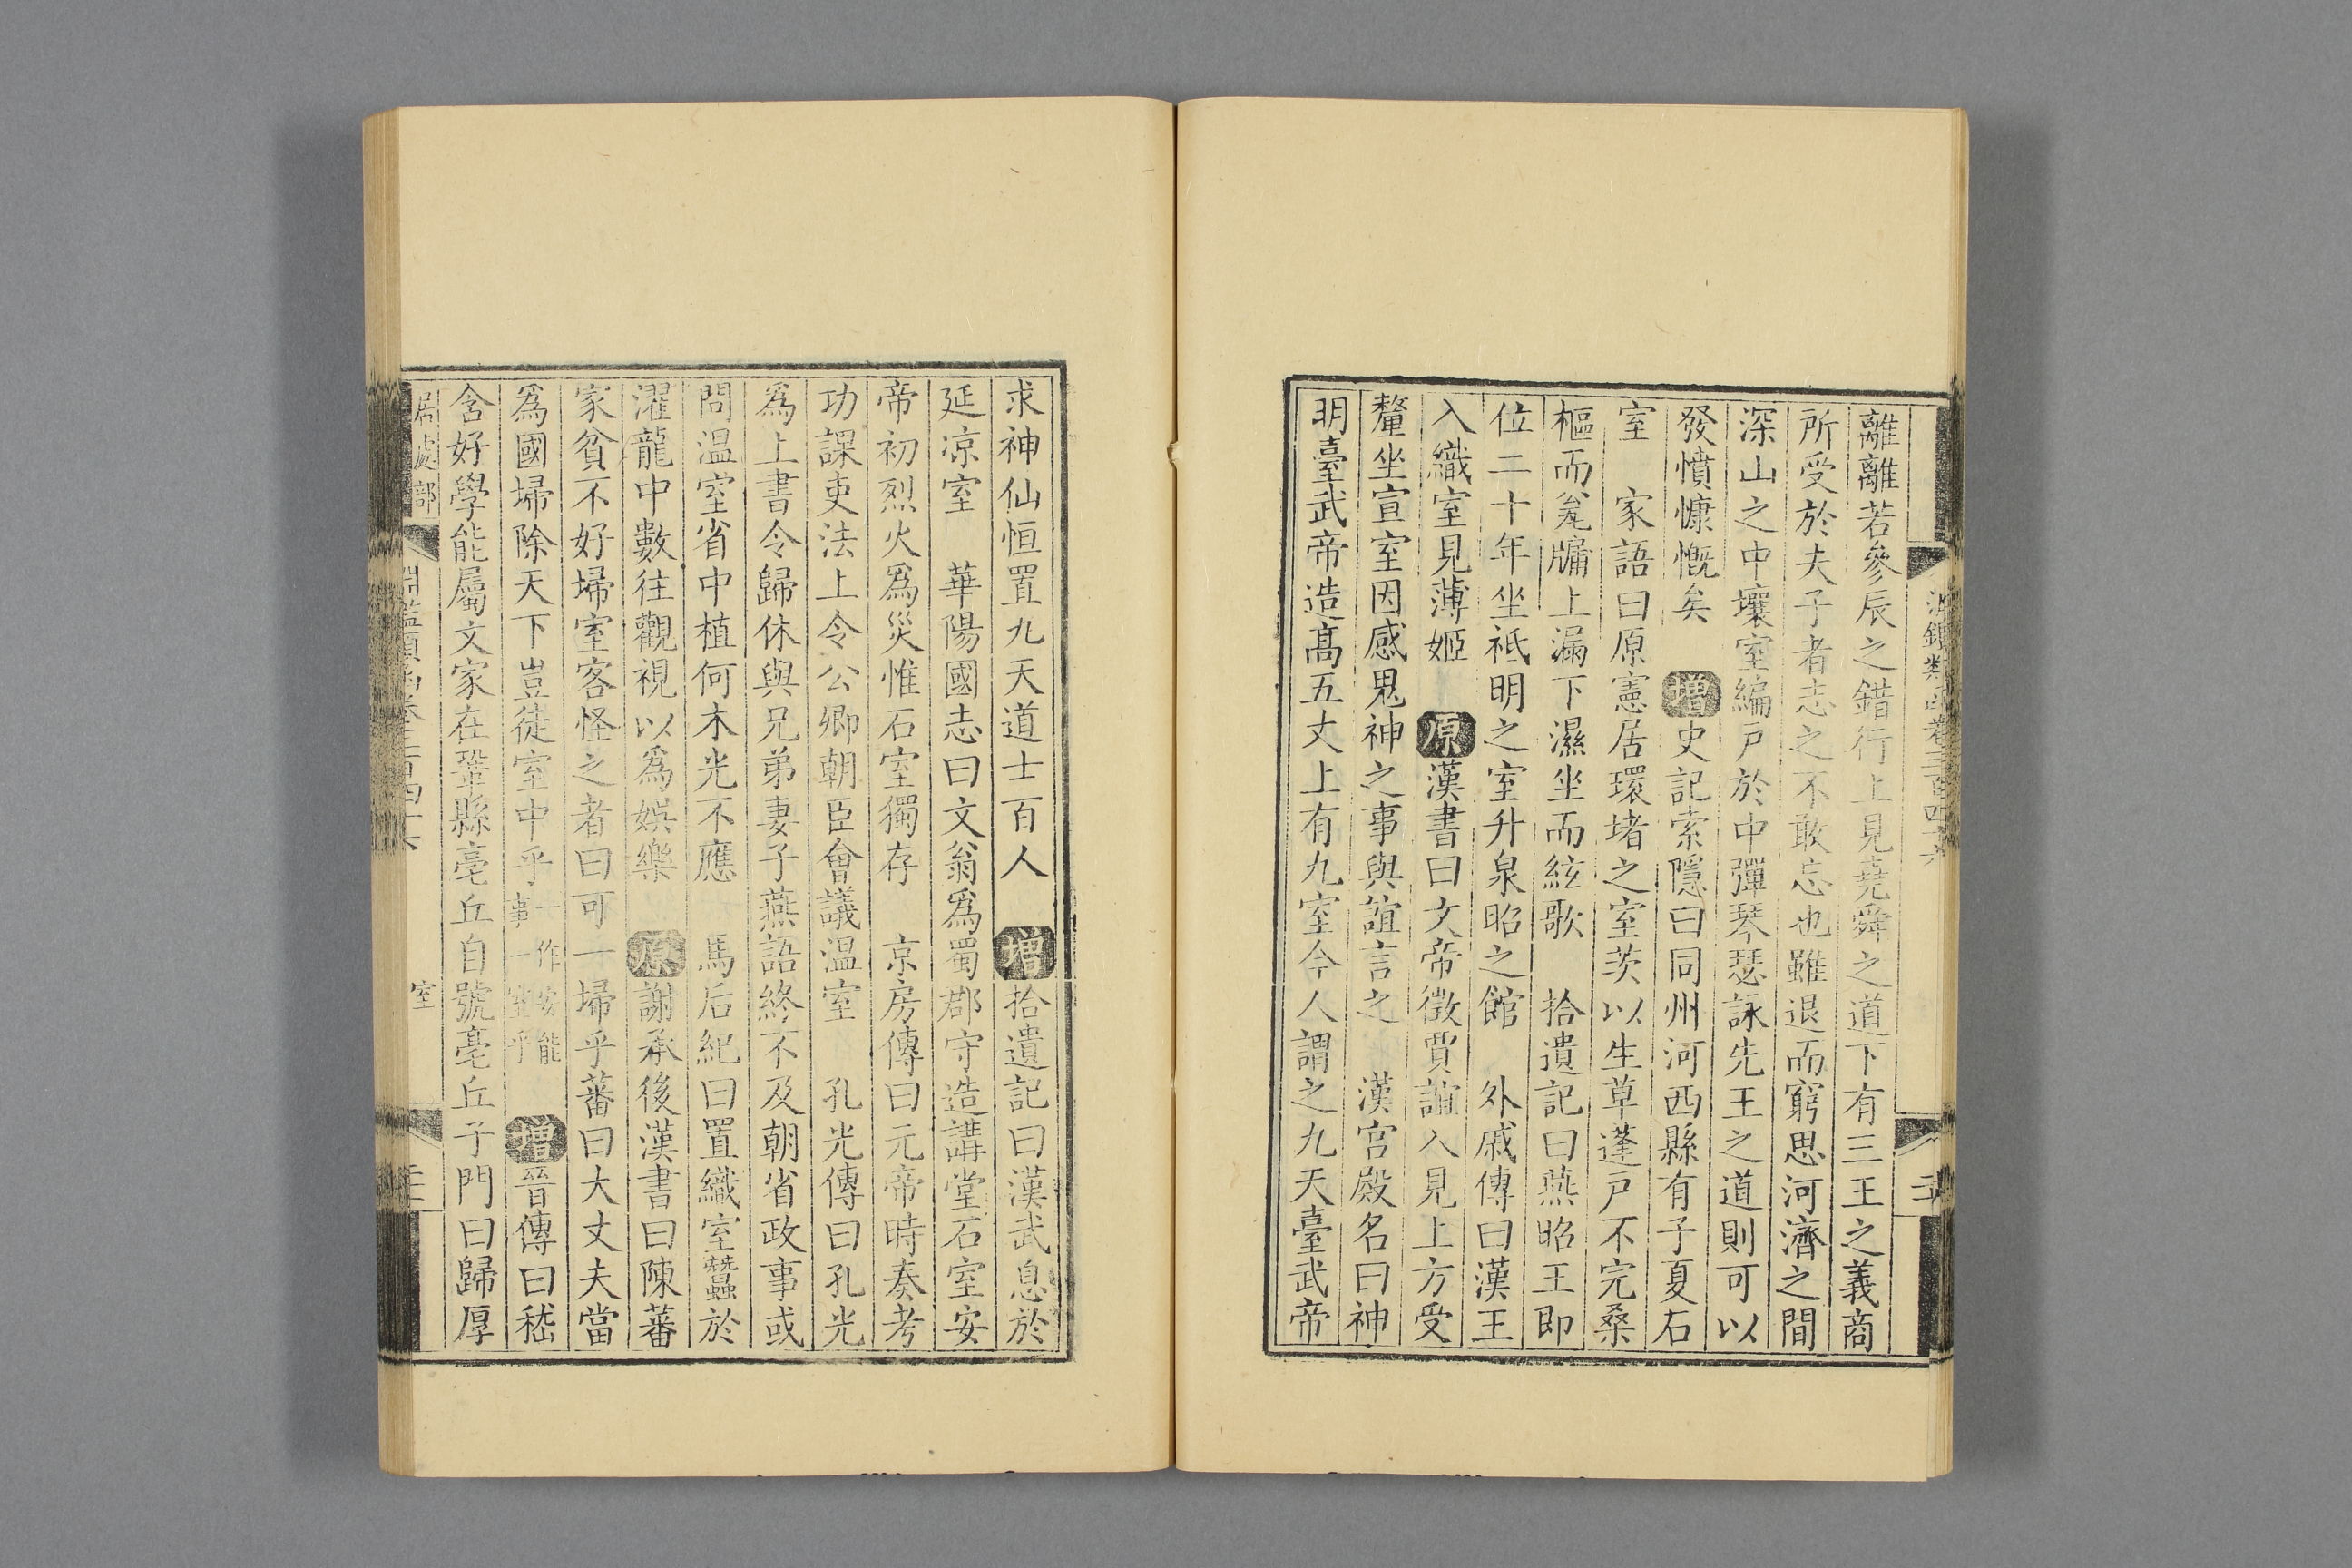 離離若參辰之錯行上見堯舜之道下有三王之義商
所受於夫子者志之不敢忘也雖退而窮思河濟之間
深山之中壤室編戸於中彈琴瑟詠先王之道則可以
發憤慷慨矣 增史記索隱曰同州河西縣有子夏石
室 家語曰原憲居環堵之室茨以生草蓬戸不完桑
樞而瓮牖上漏下濕坐而絃歌 拾遺記曰燕昭王即
位二十年坐祗明之室升泉昭之館 外戚傳曰漢王
入織室見薄姬 原漢書曰文帝徵賈誼入見上方受
釐坐宣室因感鬼神之事與誼言之 漢宫殿名曰神
明臺武帝造髙五丈上有九室今人謂之九天臺武帝
求神仙恒置九天道士百人 增拾遺記曰漢武息於
延凉室 華陽國志曰文翁爲蜀郡守造講堂石室安
帝初烈火爲災惟石室獨存 京房傳曰元帝時奏考
功課吏法上令公卿朝臣會議溫室 孔光傳曰孔光
爲上書令歸休與兄弟妻子燕語終不及朝省政事或
問溫室省中植何木光不應 馬后紀曰置織室蠶於
濯龍中數往觀視以爲娯樂 原謝承後漢書曰陳蕃
家貧不好埽室客怪之者曰可一埽乎蕃曰大丈夫當
爲國埽除天下豈徒室中乎一作安能事一室乎 增晉傳曰嵇
含好學能屬文家在鞏縣亳丘自號亳丘子門曰歸厚
居處部 淵鑑類函卷三百四十六 室